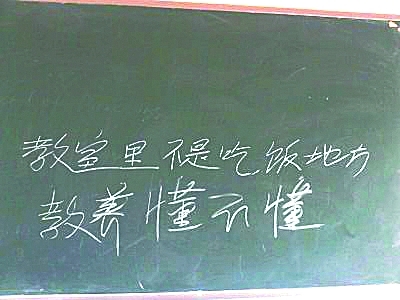 教室里不是吃饭地方
教养懂不懂